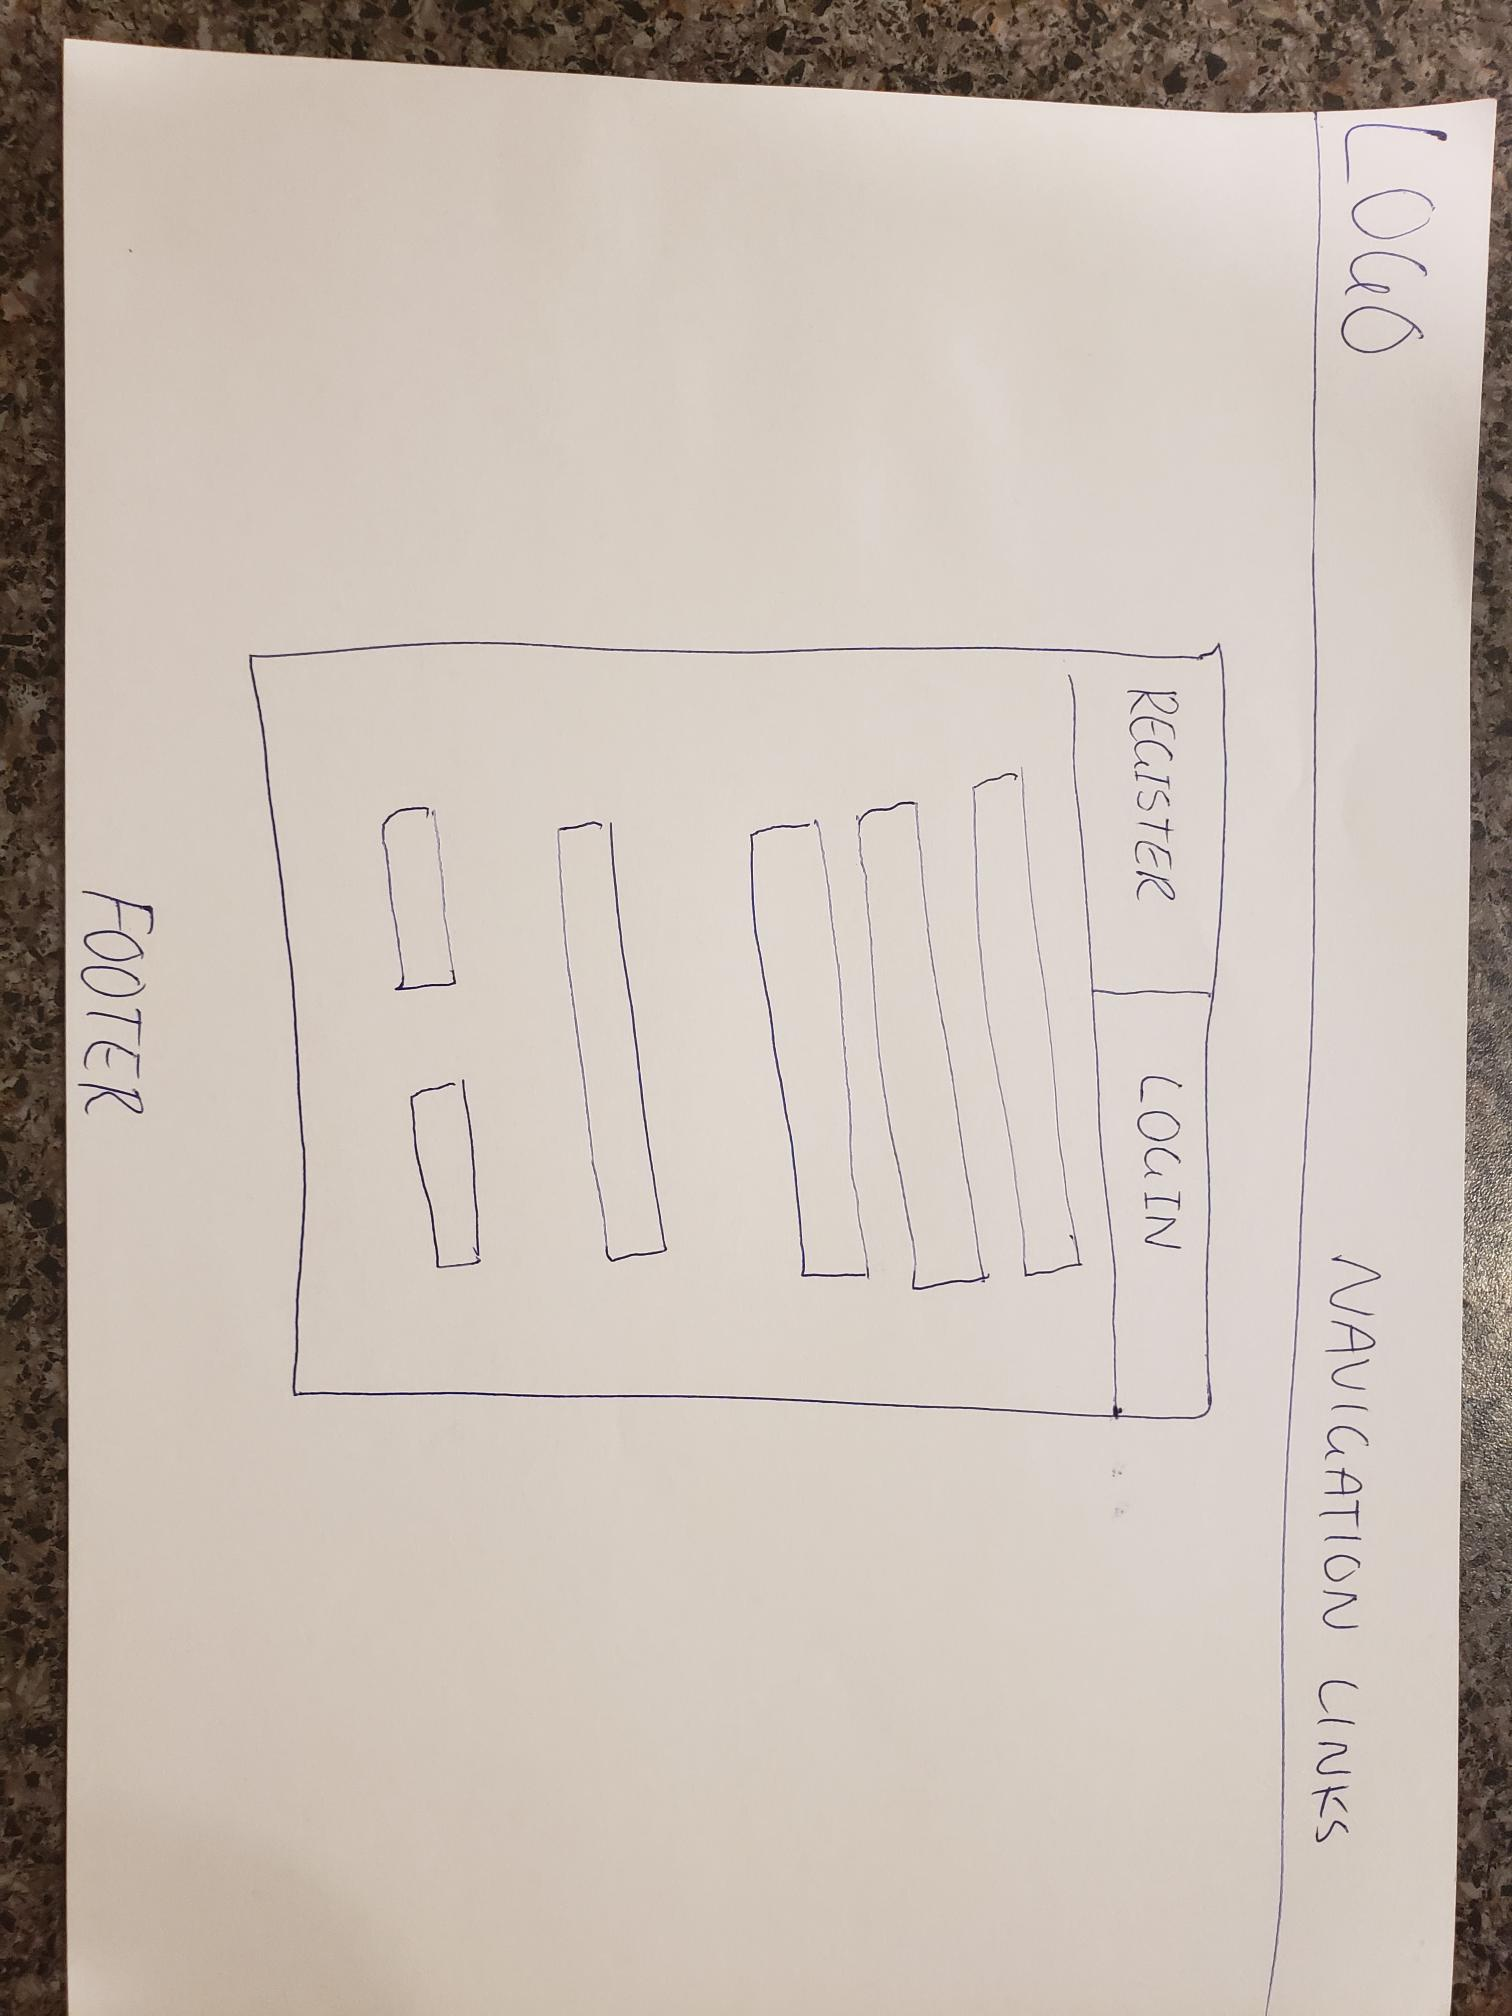 LOGO
NAVIGATION LINKS
REGISTER
LOGIN
FOOTER